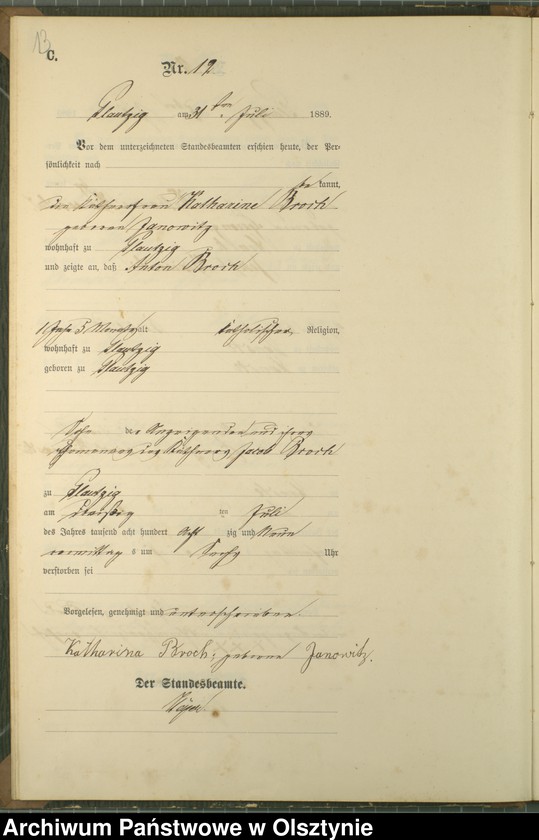 13
C.
Nr. 12
Plautzig am 31 ten Juli 1889.
Vor dem unterzeichneten Standesbeamten erschien heute, der Per-
sönlichkeit nach
be kannt,
die Käthnerfrau Katharine Broch
geborene Janowitz
wohnhaft zu Plautzig
und zeigte an, daß Anton Broch
5 Monate alt katholischer Religion,
wohnhaft zu Plautzig
geboren zu Plautzig
Sohn der Anzeigenden und ihres
Ehemannes des Käthners Jacob Broch
zu Plautzig
am ten Juli
des Jahres tausend acht hundert acht zig und Neun
vormittag s um Sechs Uhr
verstorben sei
Vorgelesen, genehmigt und unterschrieben.
Katharina Broch, geborene Janowitz.
Der Standesbeamte.
Archiwum Państwowe w Olsztynie